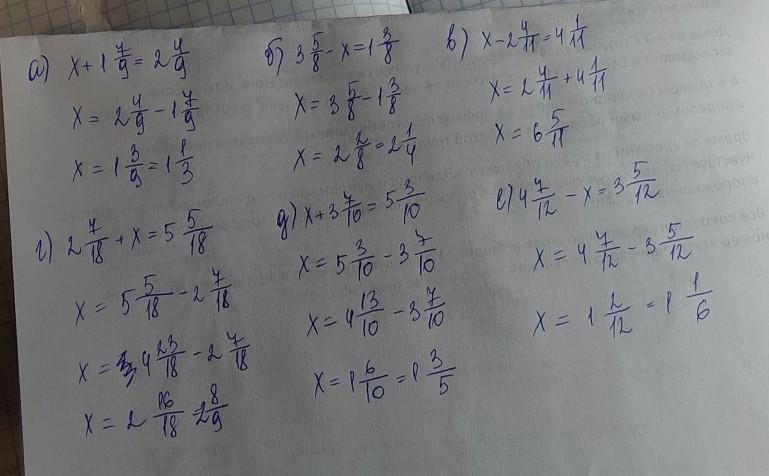 а) x + 1 7/9 = 2 4/9
x = 2 4/9 - 1 7/9
x = 1 3/9 = 1 1/3
б) 3 5/8 - x = 1 3/8
x = 3 5/8 - 1 3/8
x = 2 2/8 = 2 1/4
в) x - 2 4/11 = 4 1/11
x = 2 4/11 + 4 1/11
x = 6 5/11
г) 2 7/18 + x = 5 5/18
x = 5 5/18 - 2 7/18
x = 4 23/18 - 2 7/18
x = 2 16/18 = 2 8/9
д) x + 3 7/10 = 5 3/10
x = 5 3/10 - 3 7/10
x = 4 13/10 - 3 7/10
x = 1 6/10 = 1 3/5
е) 4 7/12 - x = 3 5/12
x = 4 7/12 - 3 5/12
x = 1 2/12 = 1 1/6